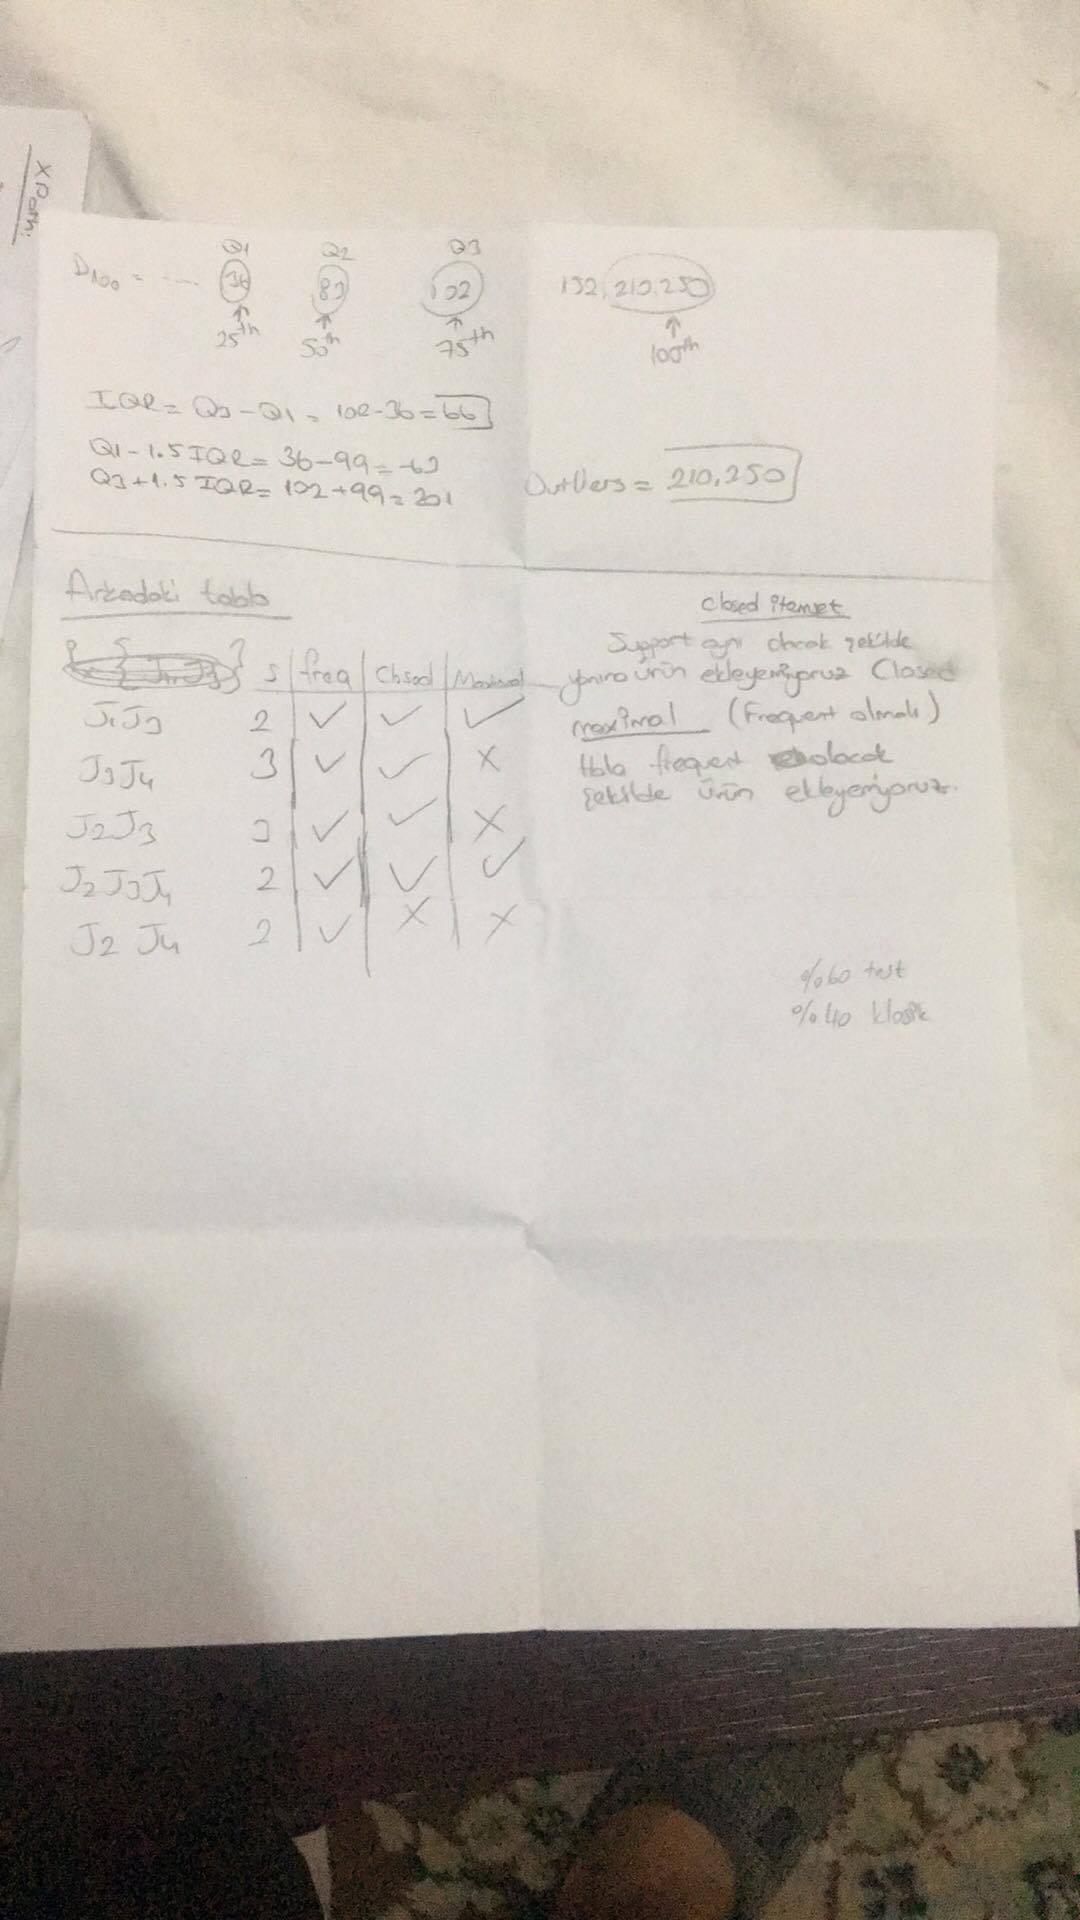 XPath:
Q1 Q2 Q3
D100 = ---- 36 83 102 192, 210, 250
25th 50th 75th 100th
IQR = Q3 - Q1 = 102-36 = 66
Q1 - 1.5 IQR = 36-99 = -63
Q3 + 1.5 IQR = 102+99 = 201
Outliers = 210, 250
Arkadaki tablo
S freq Closed Maximal
J1J3 2 ✓ ✓ ✓
J3J4 3 ✓ ✓ X
J2J3 3 ✓ ✓ X
J2J3J4 2 ✓ ✓ ✓
J2 J4 2 ✓ X X
closed itemset
Support aynı olacak şekilde
yanına ürün ekleyemiyoruz Closed
maximal (Frequent olmalı)
Hala frequent olacak
şekilde ürün ekleyemiyoruz.
%60 test
%40 klasik